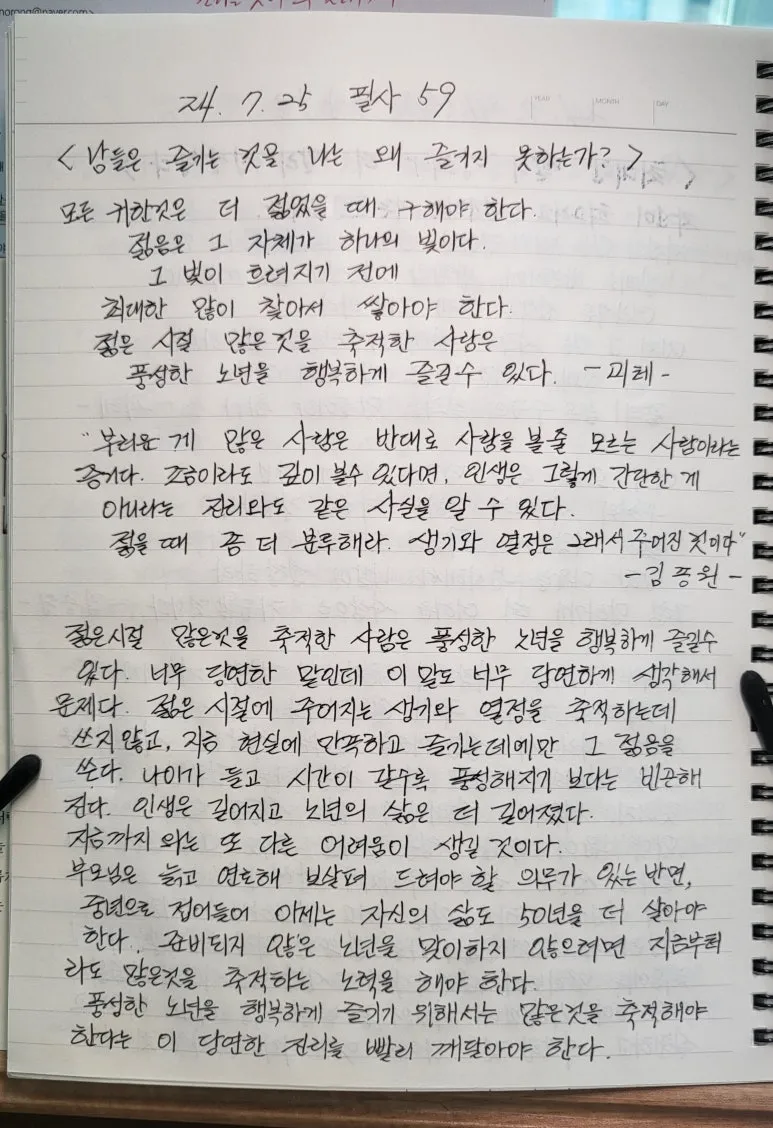 norong@naver.com>
24. 7. 25 필사 59
<남들은 즐기는 것을 나는 왜 즐기지 못하는가?>
모든 귀한것은 더 젊었을 때 구해야 한다.
젊음은 그 자체가 하나의 빛이다.
그 빛이 흐려지기 전에
최대한 많이 찾아서 쌓아야 한다.
젊은 시절 많은것을 축적한 사람은
풍성한 노년을 행복하게 즐길수 있다. -괴테-
"부러운 게 많은 사람은 반대로 사람을 볼 줄 모르는 사람이라는
증거다. 조금이라도 깊이 볼수 있다면, 인생은 그렇게 간단한 게
아니라는 진리와도 같은 사실을 알 수 있다.
젊을 때 좀 더 분투해라. 생기와 열정은 그래서 주어진 것이다"
-김종원-
젊은시절 많은것을 축적한 사람은 풍성한 노년을 행복하게 즐길수
있다. 너무 당연한 말인데 이 말도 너무 당연하게 생각해서
문제다. 젊은 시절에 주어지는 생기와 열정을 축적하는데
쓰지 않고, 지금 현실에 만족하고 즐기는데에만 그 젊음을
쓴다. 나이가 들고 시간이 갈수록 풍성해지기 보다는 빈곤해
진다. 인생은 길어지고 노년의 삶은 더 길어졌다.
지금까지 와는 또 다른 어려움이 생길 것이다.
부모님은 늙고 연로해 보살펴 드려야 할 의무가 있는 반면,
중년으로 접어들어 이제는 자신의 삶도 50년을 더 살아야
한다. 준비되지 않은 노년을 맞이하지 않으려면 지금부터
라도 많은것을 축적하는 노력을 해야 한다.
풍성한 노년을 행복하게 즐기기 위해서는 많은것을 축적해야
한다는 이 당연한 진리를 빨리 깨달아야 한다.